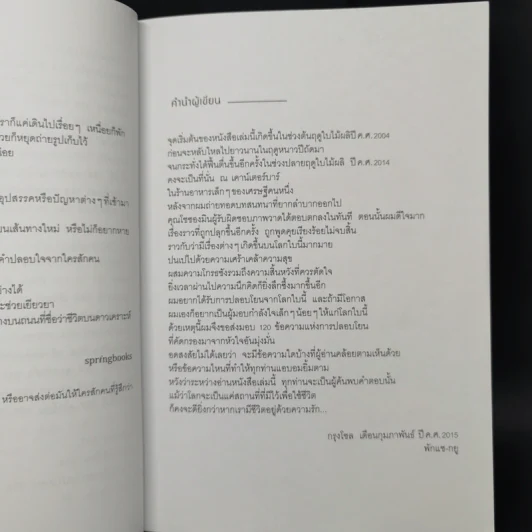 ราก็แค่เดินไปเรื่อยๆ เหนื่อยก็พัก
วยก็หยุดถ่ายรูปเก็บไว้
อุปสรรคหรือปัญหาต่างๆ ที่เข้ามา
นเส้นทางใหม่ หรือไม่ก็อยากหาย
คำปลอบใจจากใครสักคน
างได้
ะช่วยเยียวยา
างบนถนนที่ชื่อว่าชีวิตบนดาวเคราะห์
springbooks
หรืออาจส่งต่อมันให้ใครสักคนที่รู้สึกว่า
คำนำผู้เขียน
จุดเริ่มต้นของหนังสือเล่มนี้เกิดขึ้นในช่วงต้นฤดูใบไม้ผลิปี ค.ศ. 2004
ก่อนจะหลับใหลไปยาวนานในฤดูหนาวปีถัดมา
จนกระทั่งได้ฟื้นตื่นขึ้นอีกครั้งในช่วงปลายฤดูใบไม้ผลิ ปี ค.ศ. 2014
คงจะเป็นที่นั่น ณ เคาน์เตอร์บาร์
ในร้านอาหารเล็กๆ ของเศรษฐีคนหนึ่ง
หลังจากผมถ่ายทอดบทสนทนาที่ยากลำบากออกไป
คุณโชซองมินผู้รับผิดชอบภาพวาดได้ตอบตกลงในทันที ตอนนั้นผมดีใจมาก
เรื่องราวที่ถูกปลุกขึ้นอีกครั้ง ถูกพูดคุยเรียงร้อยไม่จบสิ้น
ราวกับว่ามีเรื่องต่างๆ เกิดขึ้นบนโลกใบนี้มากมาย
ปนเปไปด้วยความเศร้าเคล้าความสุข
ผสมความโกรธชังรวมถึงความสิ้นหวังที่ควรตัดใจ
ยิ่งเวลาผ่านไปความนึกคิดก็ยิ่งลึกซึ้งมากขึ้นอีก
ผมอยากได้รับการปลอบโยนจากโลกใบนี้ และถ้ามีโอกาส
ผมเองก็อยากเป็นผู้มอบกำลังใจเล็กๆ น้อยๆ ให้แก่โลกใบนี้
ด้วยเหตุนี้ผมจึงขอส่งมอบ 120 ข้อความแห่งการปลอบโยน
ที่คัดกรองมาจากหัวใจอันมุ่งมั่น
อดสงสัยไม่ได้เลยว่า จะมีข้อความใดบ้างที่ผู้อ่านคล้อยตามเห็นด้วย
หรือข้อความไหนที่ทำให้ทุกท่านแอบอมยิ้มตาม
หวังว่าระหว่างอ่านหนังสือเล่มนี้ ทุกท่านจะเป็นผู้ค้นพบคำตอบนั้น
แม้ว่าโลกจะเป็นแค่สถานที่ที่มีไว้เพื่อใช้ชีวิต
ก็คงจะดียิ่งกว่าหากเรามีชีวิตอยู่ด้วยความรัก...
กรุงโซล เดือนกุมภาพันธ์ ปี ค.ศ. 2015
พักแช-กยู